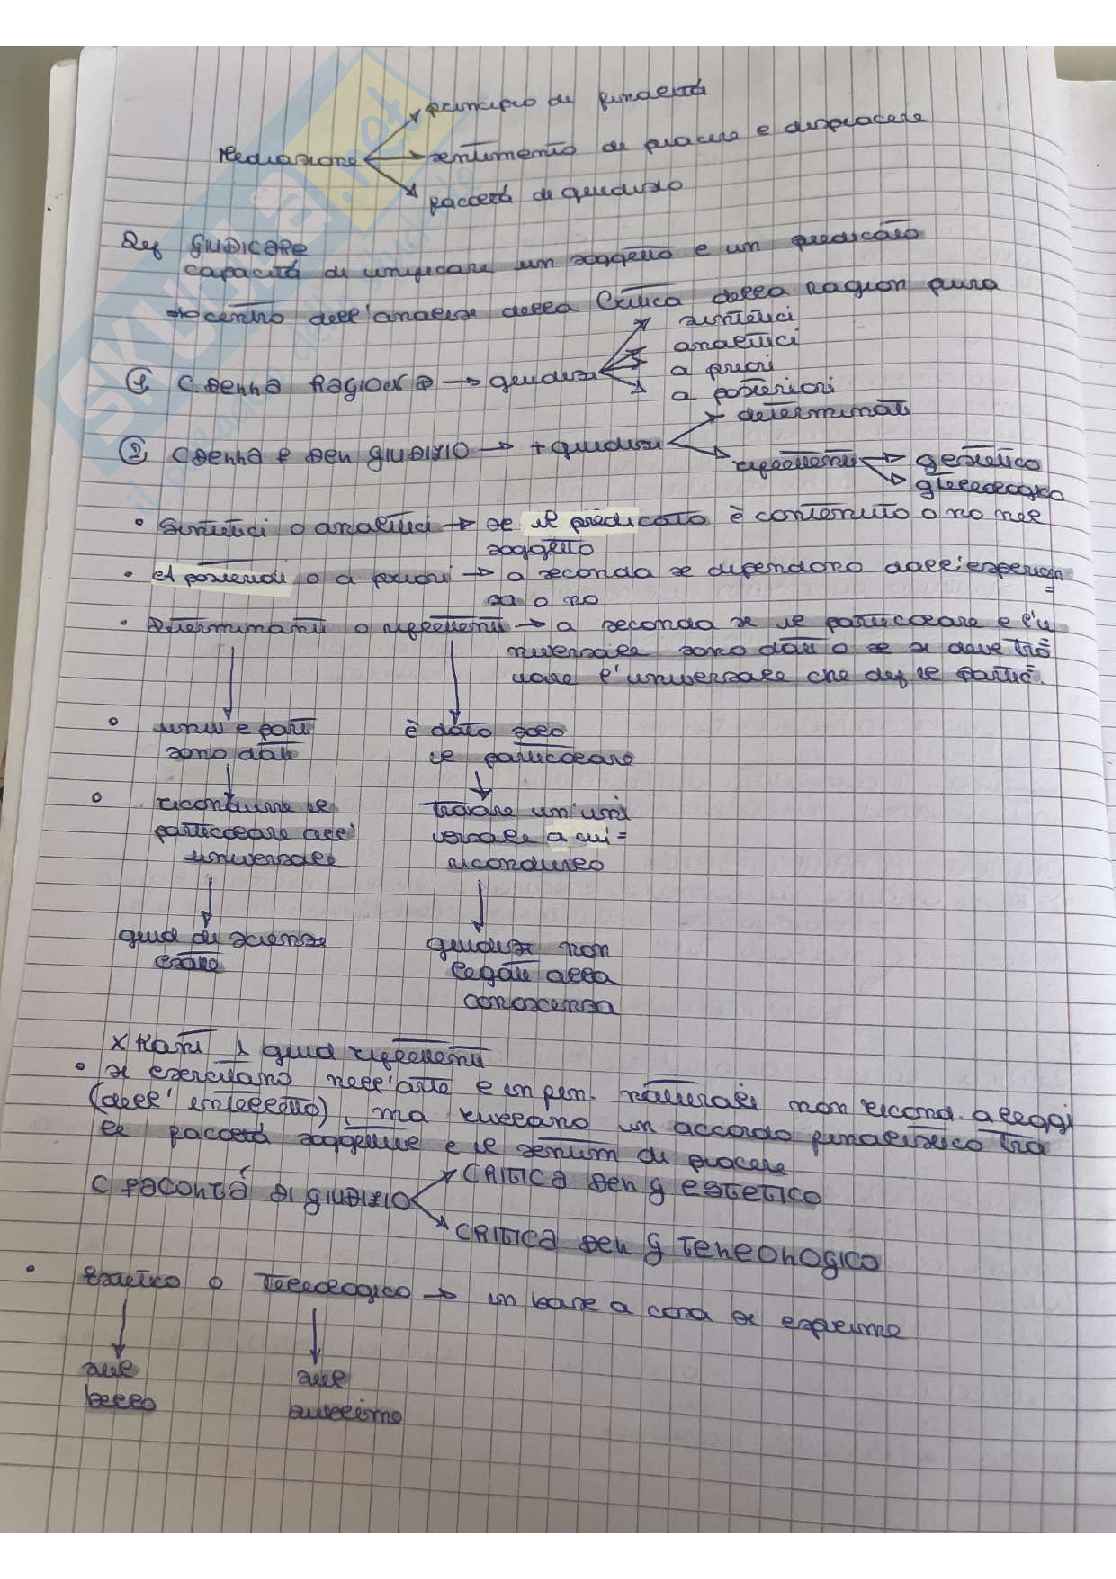 principio di finalità
mediazione → sentimento di piacere e dispiacere
facoltà di giudizio
Def GIUDICARE
capacità di unificare un soggetto e un predicato
→ centro dell'analisi della Critica della Ragion pura
sintetici
analitici
① C DELLA RAGIONE → giudizi a priori
a posteriori
determinati
② C DELLA F DEL GIUDIZIO → + giudizi
riflettenti → g estetico
g teleologico
• Sintetici o analitici → se il predicato è contenuto o no nel
soggetto
• A posteriori o a priori → a seconda se dipendono dall'esperien=
za o no
• Determinanti o riflettenti → a seconda se il particolare e l'u
niversale sono dati o se si deve tro
vare l'universale che def il partic.
• univ e part è dato solo
sono dati il particolare
• ricondurre il trovare un'uni
particolare all' versale a cui =
universale ricondurlo
giud di scienze giudizi non
esatte legati alla
conoscenza
x Kant i giud riflettenti
• si esercitano nell'arte e in fen. naturali non ricond. a leggi
(dell'intelletto), ma rivelano un accordo finalistico tra
le facoltà soggettive e il sentim di piacere
C FACOLTÀ DI GIUDIZIO CRITICA DEL G ESTETICO
CRITICA DEL G TELEOLOGICO
• Estetico o Teleologico → in base a cosa si esprime
sul sul
bello sublime